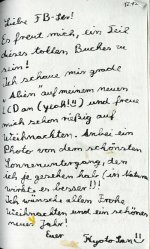 12.12
Liebe FB-ler!
Es freut mich, ein Teil
dieses tollen Buches zu
sein!
Ich schaue mir grade
"Alien" auf meinem neuen
CD an (yeah!!!) und freue
mich schon rießig auf
Weihnachten. Anbei ein
Photo von dem schönsten
Sonnenuntergang, den
ich je gesehen hab (in Natura
wirkt es besser!!)!
Ich wünsche allen Frohe
Weihnachten und ein schönes
neues Jahr!
Euer